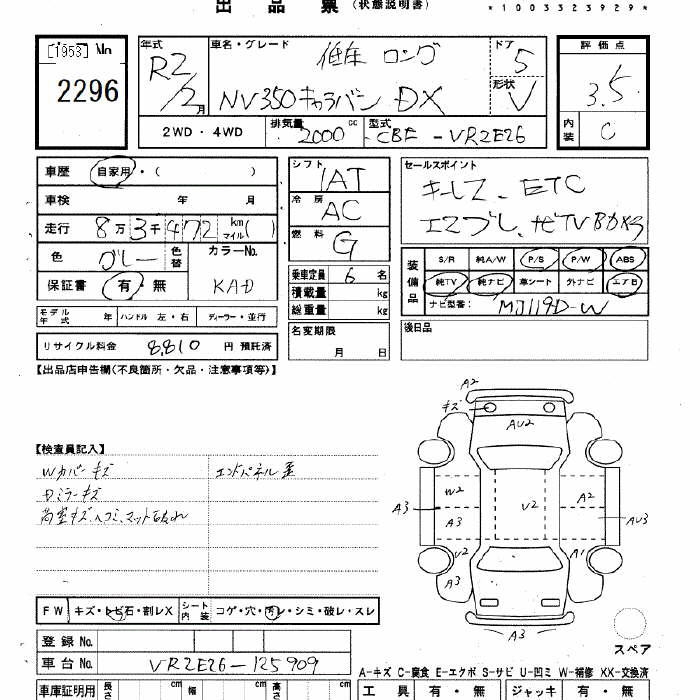 出品票(状態説明書)
*1003323929*
[1953] No
2296
年式 R2/2月
車名・グレード 低床 ロング
NV350キャラバン DX
ドア 5
形状 V
評価点 3.5
内装 C
2WD・4WD 排気量 2000 cc 型式 CBF-VR2E26
車歴 自家用・( )
車検 年 月
走行 8万3千472 km マイル( )
色 グレー 色替 カラーNo. KAD
保証書 有・無
シフト IAT
冷房 AC
燃料 G
乗車定員 6 名
積載量 kg
総重量 kg
セールスポイント
キーレス、ETC
エアブレ、ナビTV
装備品 S/R 純A/W P/S P/W ABS
純TV 純ナビ 革シート 外ナビ エアB
ナビ型番: MJ119D-W
モデル年式 年 ハンドル 左・右 ディーラー・並行
名変期限 月 日
後日品
リサイクル料金 8,810 円 預託済
【出品店申告欄(不良箇所・欠品・注意事項等)】
【検査員記入】
Wカバーキズ エンドパネル歪
Dミラーキズ
荷室キズ、ヘコミ、マット破れ
A2
キズ
AU2
W2
A2
A3
A3
V2
AU3
U2
A1
A3
A3
スペア
FW キズ・トビ石・割レX シート内装 コゲ・穴・汚レ・シミ・破レ・スレ
登録No.
車台No. VR2E26-125909
A-キズ C-腐食 E-エクボ S-サビ U-凹ミ W-補修 XX-交換済
車庫証明用 長さ cm 幅 cm 高さ cm
工具 有・無 ジャッキ 有・無